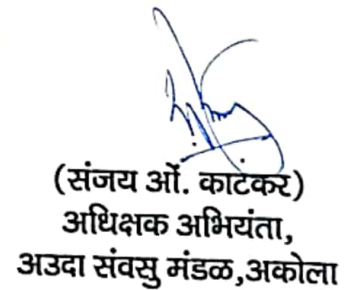 (संजय ओं. काटंकर)
अधिक्षक अभियंता,
अउदा संवसु मंडळ,अकोला